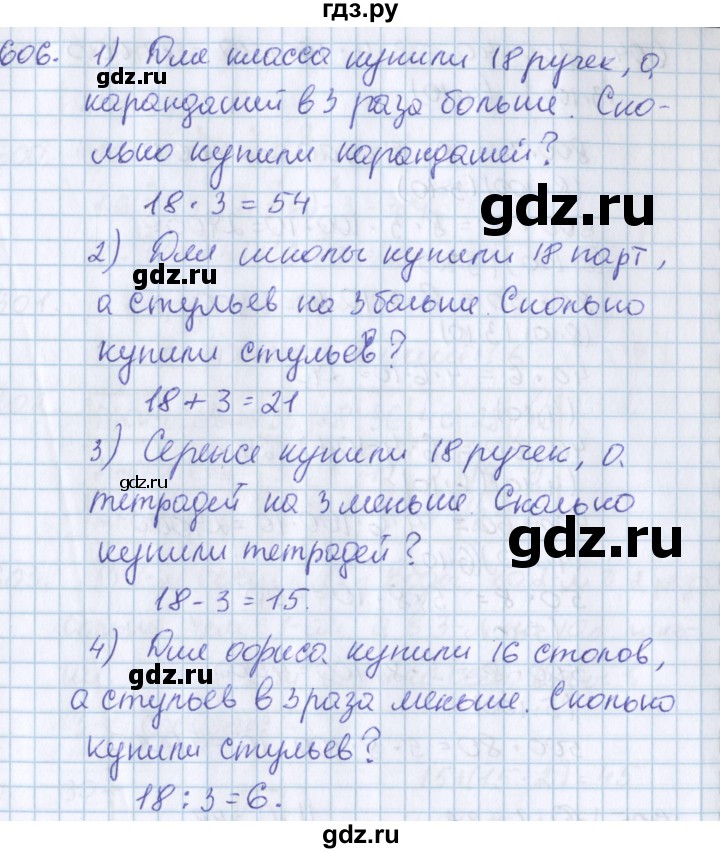 гдз.ру
606. 1) Для класса купили 18 ручек, а
gdz.ru
карандашей в 3 раза больше. Ско-
лько купили карандашей?
18 · 3 = 54
gdz.ru
2) Для школы купили 18 парт,
gdz.ru
а стульев на 3 больше. Сколько
купили стульев?
18 + 3 = 21
3) Сереже купили 18 ручек, а
gdz.ru
тетрадей на 3 меньше. Сколько
купили тетрадей?
gdz.ru
18 - 3 = 15.
4) Для офиса купили 16 столов,
gdz.ru
а стульев в 3 раза меньше. Сколько
купили стульев?
18 : 3 = 6.
gdz.ru